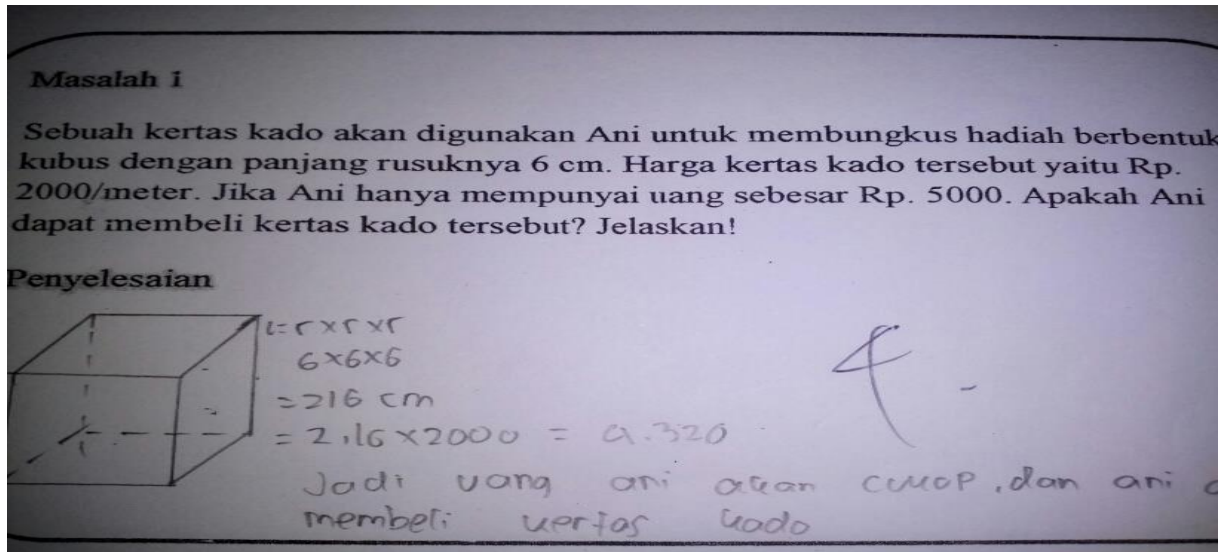 Masalah 1
Sebuah kertas kado akan digunakan Ani untuk membungkus hadiah berbentuk
kubus dengan panjang rusuknya 6 cm. Harga kertas kado tersebut yaitu Rp.
2000/meter. Jika Ani hanya mempunyai uang sebesar Rp. 5000. Apakah Ani
dapat membeli kertas kado tersebut? Jelaskan!
Penyelesaian
L=r×r×r
6×6×6
=216 cm
= 2,16×2000 = 4.320
4
Jadi uang ani akan cukop, dan ani
membeli kertas kado